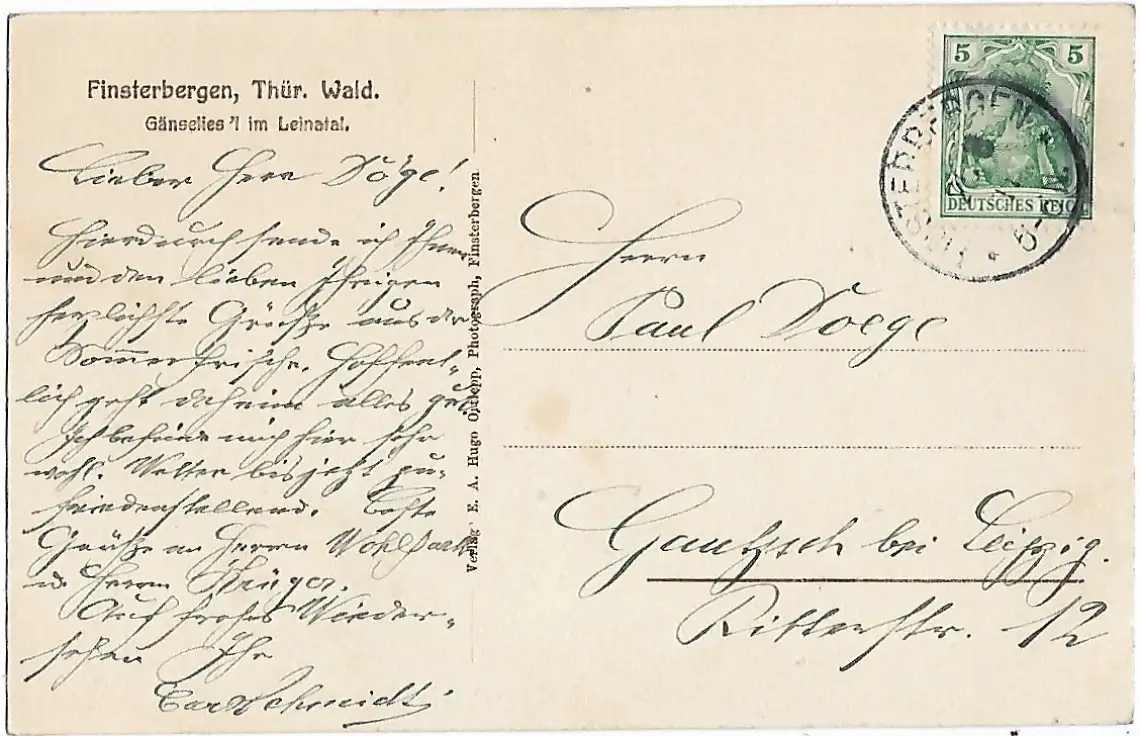 Finsterbergen, Thür. Wald.
Gänselies'l im Leinatal.
Lieber Herr Döge!
Hierdurch sende ich Ihnen
und den lieben Ihrigen
herzlichste Grüße aus der
Sommerfrische. Hoffent-
lich geht daheim alles gut.
Ich befinde mich hier sehr
wohl. Wetter bis jetzt zu-
friedenstellend. Beste
Grüße an Herrn
u. Herrn Krüger.
Auf frohes Wieder-
sehen Ihr
Carl Schmidt
Verlag E. A. Hugo Photograph, Finsterbergen
5 5
DEUTSCHES REICH
FINSTERBERGEN
Herrn
Paul Doege
Gautzsch bei Leipzig.
Ritterstr. 12